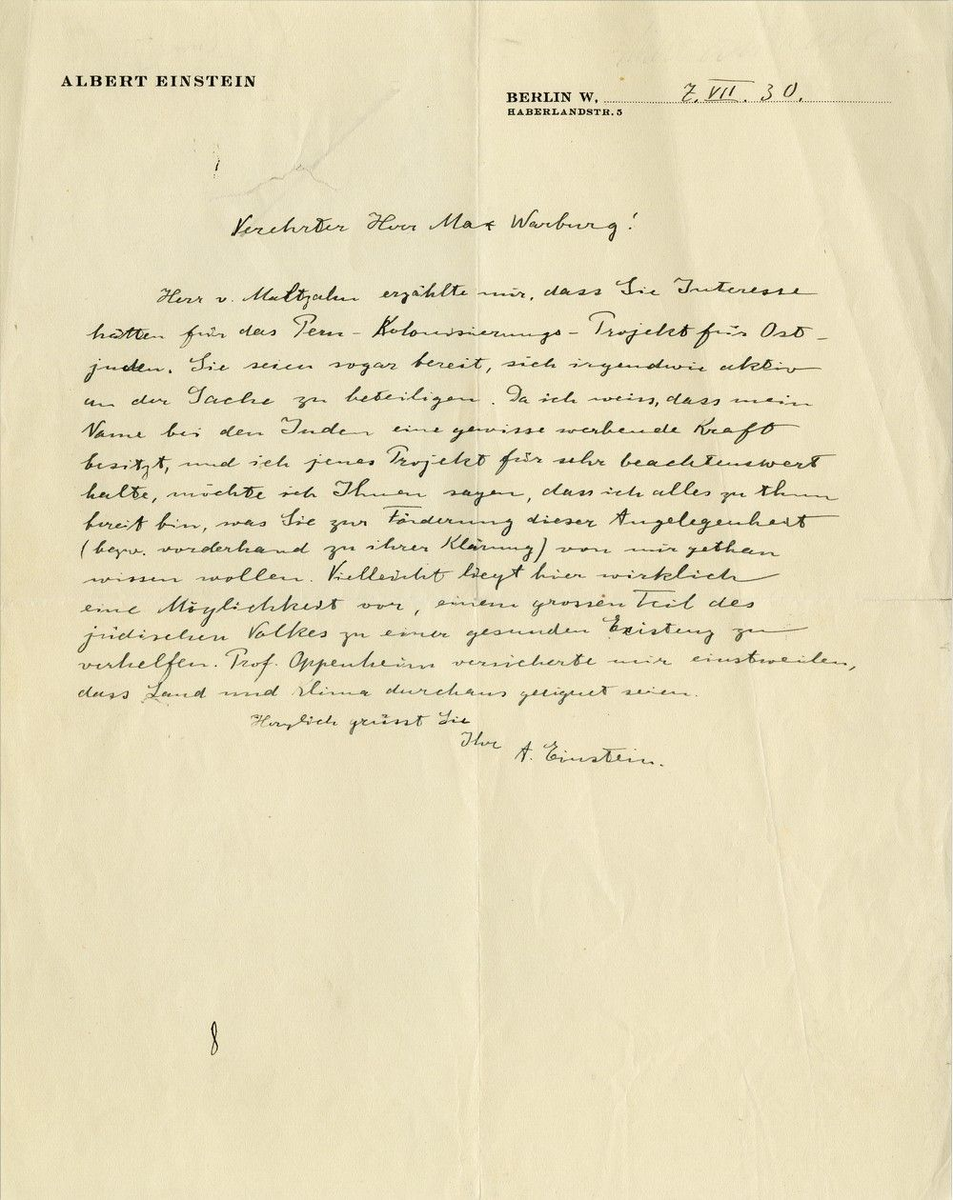 ALBERT EINSTEIN
BERLIN W, 7. VII. 30.
HABERLANDSTR. 5
Verehrter Herr Max Warburg!
Herr v. Maltzahn erzählte mir, dass Sie Interesse
hätten für das Peru-Kolonisierungs-Projekt für Ost-
juden. Sie seien sogar bereit, sich irgendwie aktiv
an der Sache zu beteiligen. Da ich weiss, dass mein
Name bei den Juden eine gewisse werbende Kraft
besitzt, und ich jenes Projekt für sehr beachtenswert
halte, möchte ich Ihnen sagen, dass ich alles zu thun
bereit bin, was Sie zur Förderung dieser Angelegenheit
(bezw. vorderhand zu ihrer Klärung) von mir gethan
wissen wollen. Vielleicht liegt hier wirklich
eine Möglichkeit vor, einem grossen Teil des
jüdischen Volkes zu einer gesunden Existenz zu
verhelfen. Prof. Oppenheim versicherte mir einstweilen,
dass Land und Klima durchaus geeignet seien.
Herzlich grüsst Sie
Ihr A. Einstein.
8